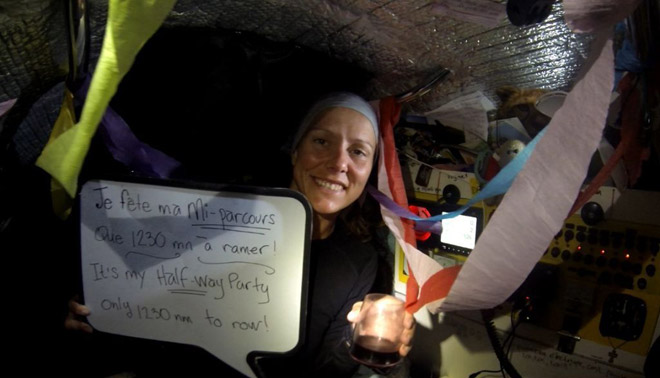 Je fête ma Mi-parcours
Que 1230 mn à ramer!
It's my Half-way Party
only 1230 nm to row!